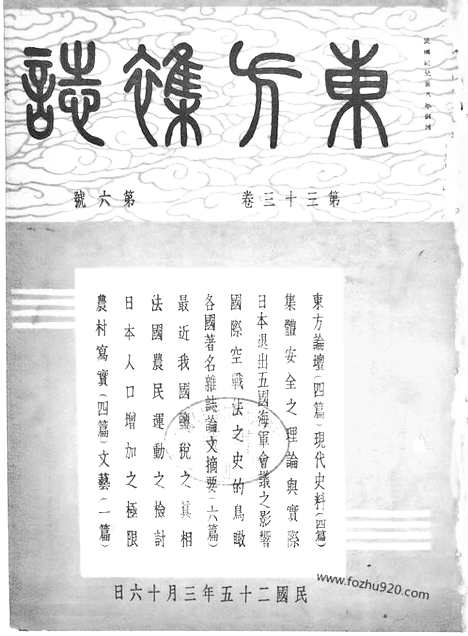 東方雜誌
第三十三卷 第六號
東方論壇(四篇)現代史料(四篇)
集體安全之理論與實際
日本退出五國海軍會議之影響
國際空戰法之史的鳥瞰
各國著名雜誌論文摘要(六篇)
最近我國鹽稅之真相
法國農民運動之檢討
日本人口增加之極限
農村寫實(四篇)文藝(一篇)
民國二十五年三月十六日
www.fozhu920.com